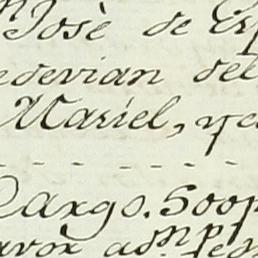 Josè de Esp
edevian del
Mariel, y e
Cargo. 500p
avor adm